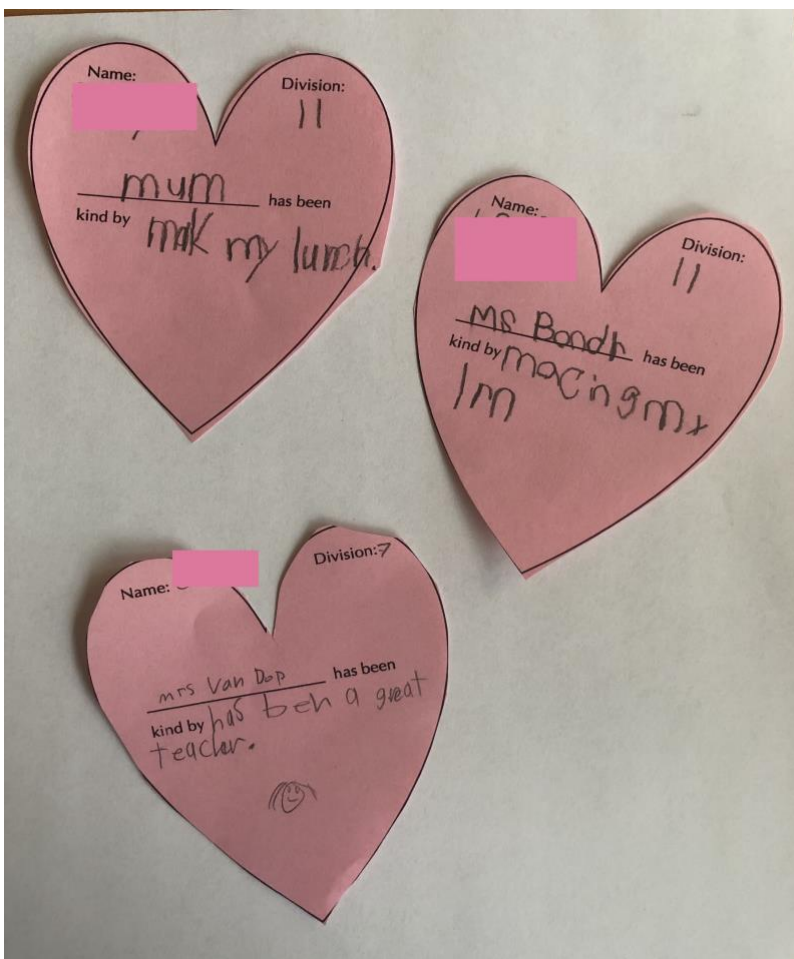 Name:
Division:
11
mum has been
kind by mak my lunch.
Name:
Division:
11
Ms Bondr has been
kind by macing my
Im
Name:
Division:7
mrs Van Dop has been
kind by has beh a great
teacher.